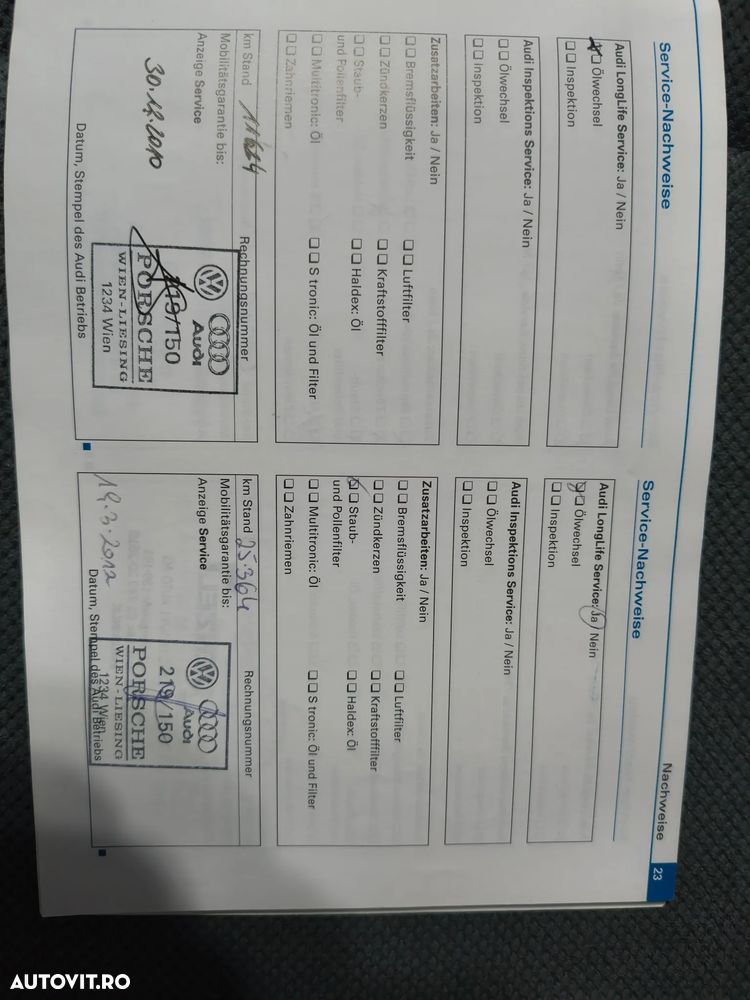 Nachweise
23
Service-Nachweise
Audi LongLife Service: Ja / Nein
Ölwechsel
Inspektion
Audi Inspektions Service: Ja / Nein
Ölwechsel
Inspektion
Zusatzarbeiten: Ja / Nein
Bremsflüssigkeit
Luftfilter
Zündkerzen
Kraftstofffilter
Staub-
und Pollenfilter
Haldex: Öl
Multitronic: Öl
S tronic: Öl und Filter
Zahnriemen
km Stand
Rechnungsnummer
Mobilitätsgarantie bis:
Anzeige Service
30.12.2010
Audi
219/150
PORSCHE
WIEN-LIESING
1234 Wien
Datum, Stempel des Audi Betriebs
Service-Nachweise
Audi LongLife Service: Ja / Nein
Ölwechsel
Inspektion
Audi Inspektions Service: Ja / Nein
Ölwechsel
Inspektion
Zusatzarbeiten: Ja / Nein
Bremsflüssigkeit
Luftfilter
Zündkerzen
Kraftstofffilter
Staub-
und Pollenfilter
Haldex: Öl
Multitronic: Öl
S tronic: Öl und Filter
Zahnriemen
km Stand 25364
Rechnungsnummer
Mobilitätsgarantie bis:
Anzeige Service
19.3.2012
Audi
219/150
PORSCHE
WIEN-LIESING
1234 Wien
Datum, Stempel des Audi Betriebs
AUTOVIT.RO